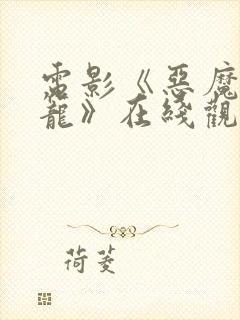 電影《惡魔
龍》在綫觀
荷菱